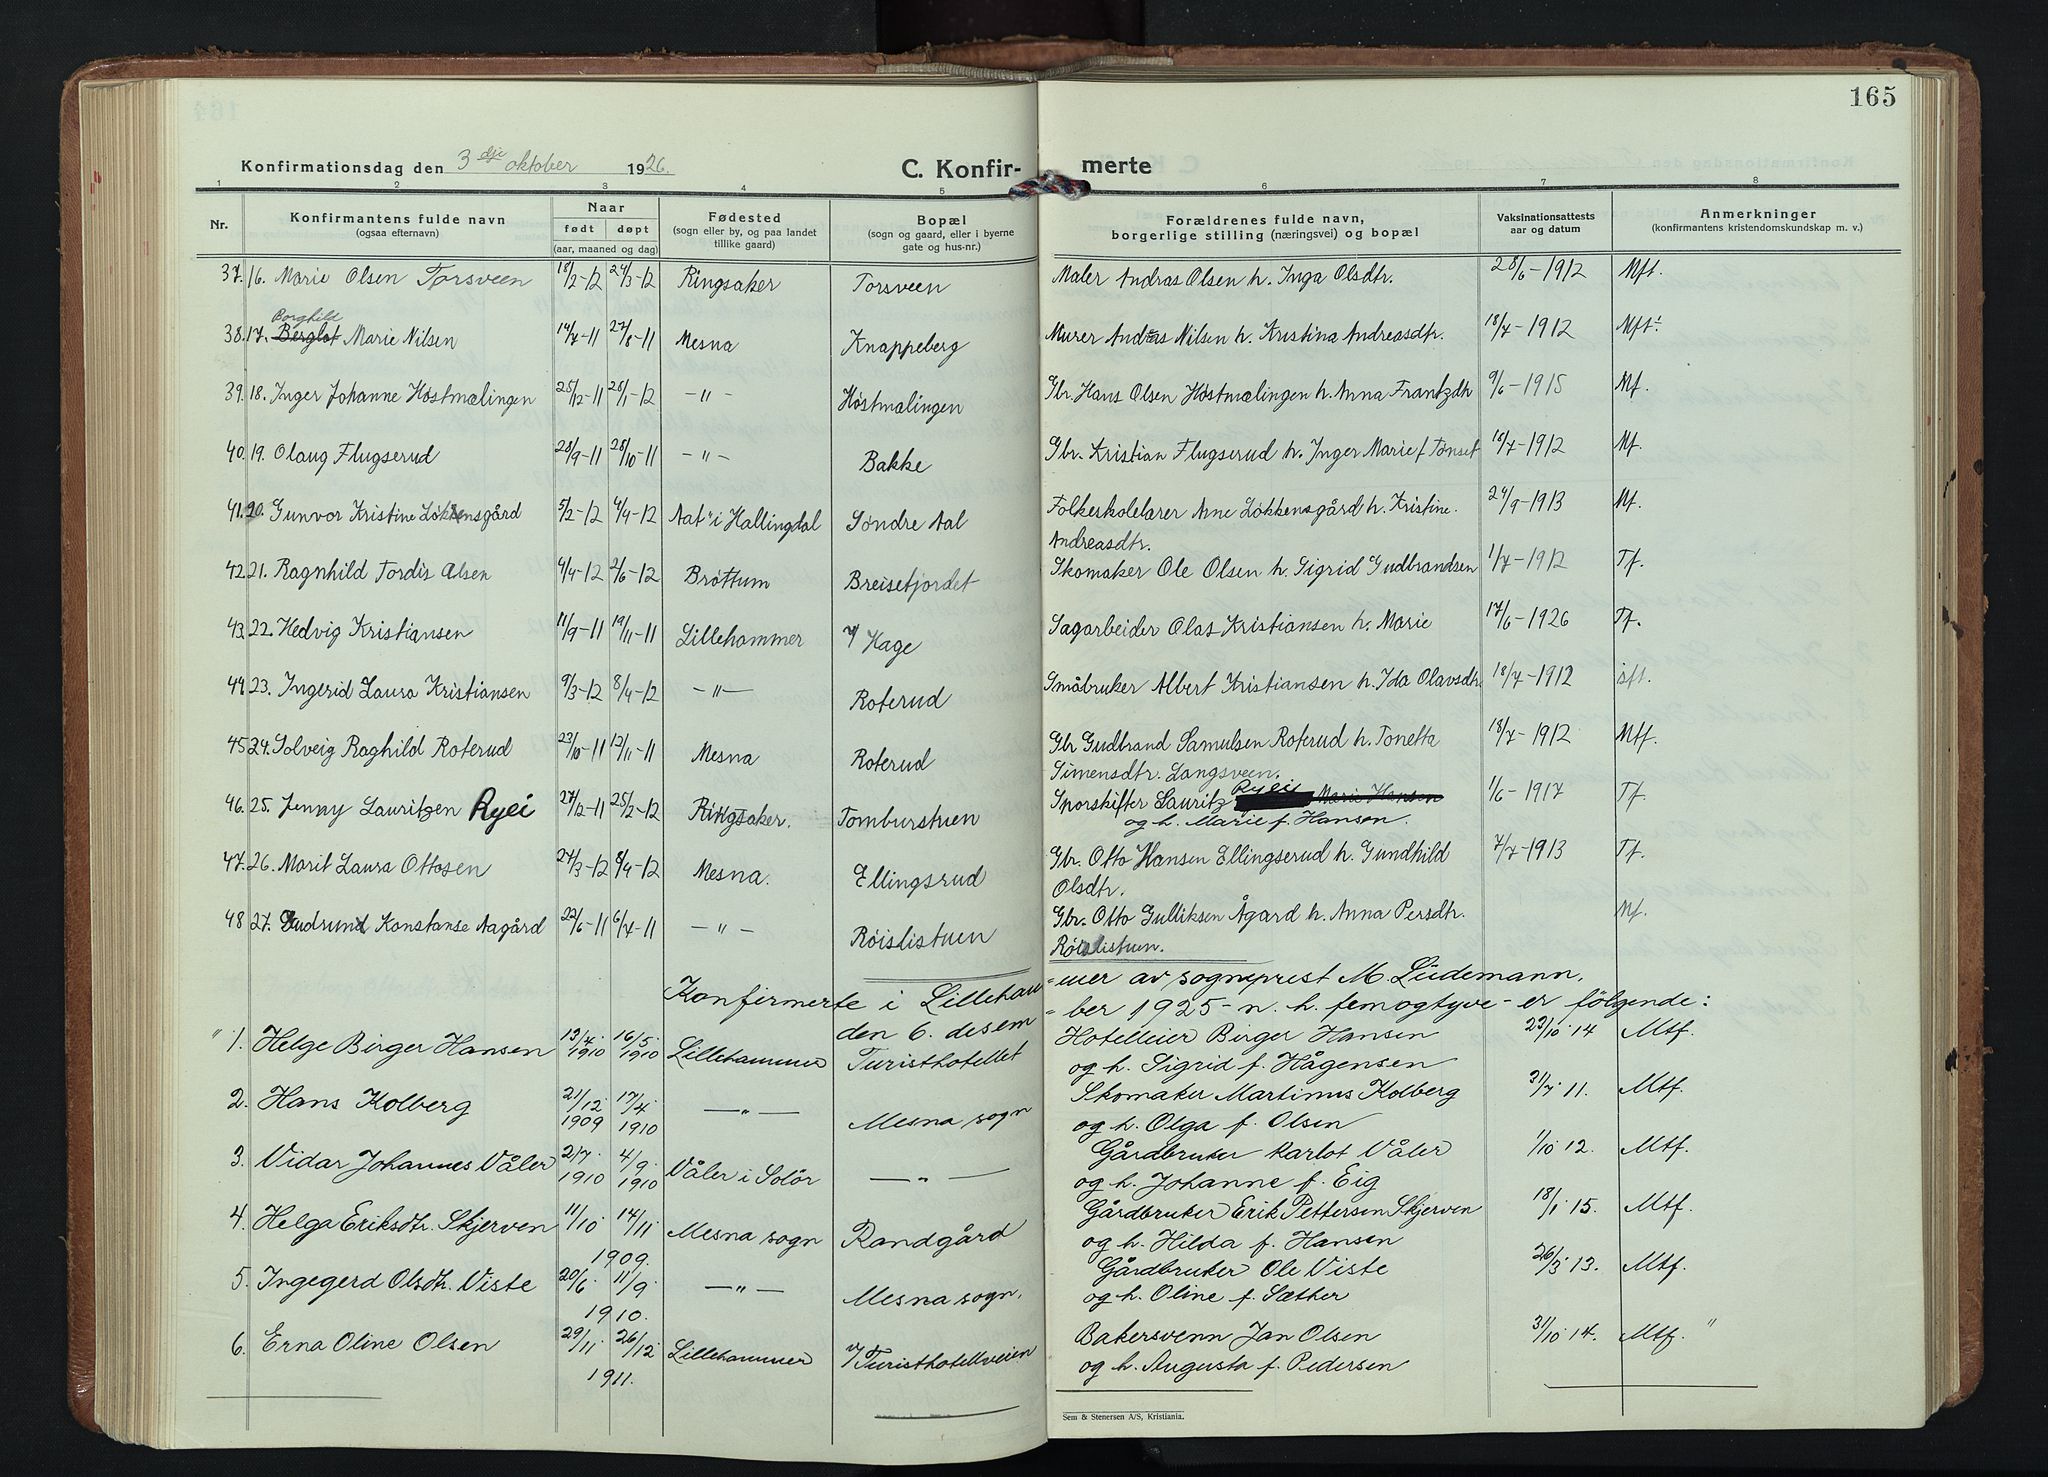 165
Konfirmationsdag den 3dje oktober 1926. C. Konfirmerte
1 2 3 4 5 6 7 8
Nr. Konfirmantens fulde navn (ogsaa efternavn) Naar født døpt (aar, maaned og dag) Fødested (sogn eller by, og paa landet tillike gaard) Bopæl (sogn og gaard, eller i byerne gate og hus-nr.) Forældrenes fulde navn, borgerlige stilling (næringsvei) og bopæl Vaksinationsattests aar og datum Anmerkninger (konfirmantens kristendomskundskap m. v.)
37. 16. Marie Olsen Torsveen 18/2-12 24/3-12 Ringsaker Torsveen Maler Andras Olsen h. Inga Olsdtr. 28/6-1912 Mft.
Borghild
38. 17. Berglot Marie Nilsen 14/7-11 27/8-11 Mesna Knappeberg Murer Andras Nilsen h. Kristina Andreasdtr. 18/7-1912 Mft.
39. 18. Inger Johanne Høstmælingen 25/12-11 28/1-12 -"- Høstmælingen Gbr. Hans Olsen Høstmælingen h. Anna Frantzdtr 9/6-1915 Mf.
40. 19. Olaug Flugserud 28/9-11 28/10-11 -"- Bakke Gbr. Kristian Flugserud h. Inger Marie f Tønset 18/7-1912 Mf.
41. 20. Gunvor Kristine Løkkensgård 5/2-12 4/4-12 Aal i Hallingdal Søndre Aal Folkeskolelærer Arne Løkkensgård h. Kristine 24/9-1913 Mf.
Andreasdtr.
42. 21. Ragnhild Tordis Olsen 4/4-12 2/6-12 Brøttum Breisetjordet Skomaker Ole Olsen h. Sigrid Gudbrandsen 1/7-1912 Tf.
43. 22. Hedvig Kristiansen 11/9-11 19/11-11 Lillehammer v/ Hage Sagarbeider Olas Kristiansen h. Marie 17/6-1926 Tf.
44. 23. Ingerid Laura Kristiansen 9/3-12 8/4-12 -"- Roterud Småbruker Albert Kristiansen h. Ida Olavsdtr. 18/7-1912
45. 24. Solveig Raghild Roterud 23/10-11 13/11-11 Mesna Roterud Gbr Gudbrand Samulsen Roterud h. Tonetta 18/7-1912 Mtf.
Simensdtr. Langsveen.
46. 25. Jenny Lauritzen Ryei 27/12-11 25/2-12 Ringsaker. Tomburstuen Sporskifter Lauritz Ryei Marie Hansen 1/6-1917 Tf.
og h. Marie f. Hansen.
47. 26. Marit Laura Ottosen 24/3-12 8/4-12 Mesna. Ellingsrud Gbr. Otto Hansen Ellingserud h. Gundhild 7/7-1913 Tf.
Olsdtr.
48 27. Gudrund Konstanse Aagård 22/6-11 6/7-11 -"- Røislistuen Gbr. Otto Gulliksen Ågard h. Anna Persdtr. Mf.
Røislistuen.
Konfirmerte i Lillehammer av sogneprest M. Lüdemann,
den 6. desember 1925 - n. h. femogtyve - er følgende:
" 1. Helge Birger Hansen 13/4. 1910 16/5. 1910 Lillehammer Turisthotellet Hotelleier Birger Hansen 23/10 14 Mtf.
og h. Sigrid f. Hågensen
2. Hans Kolberg 21/12. 1909 17/4. 1910 -"- Mesna sogn Skomaker Martinus Kolberg 31/7 11. Mtf.
og h. Olga f. Olsen
3. Vidar Johannes Våler 2/7. 1910 4/9. 1910 Våler i Solör -"- Gårdbruker Karlot Våler 1/10 12. Mtf.
og h. Johanne f. Eig
4. Helga Eriksdtr. Skjerven 11/10. 14/11 1909. Mesna sogn Randgård Gårdbruker Erik Pettersen Skjerven 18/1 15. Mtf.
og h. Hilda f. Hansen
5. Ingegerd Olsdtr. Viste 20/6. 11/9 1910. -"- Mesna sogn. Gårdbruker Ole Viste 26/3 13. Mtf.
og h. Oline f. Sæther
6. Erna Oline Olsen 29/11. 26/12 1911. Lillehammer v/Turisthotellveien Bakersvenn Jan Olsen 31/10 14. Mtf. "
og h. Augusta f. Pedersen
Sem & Stenersen A/S, Kristiania.